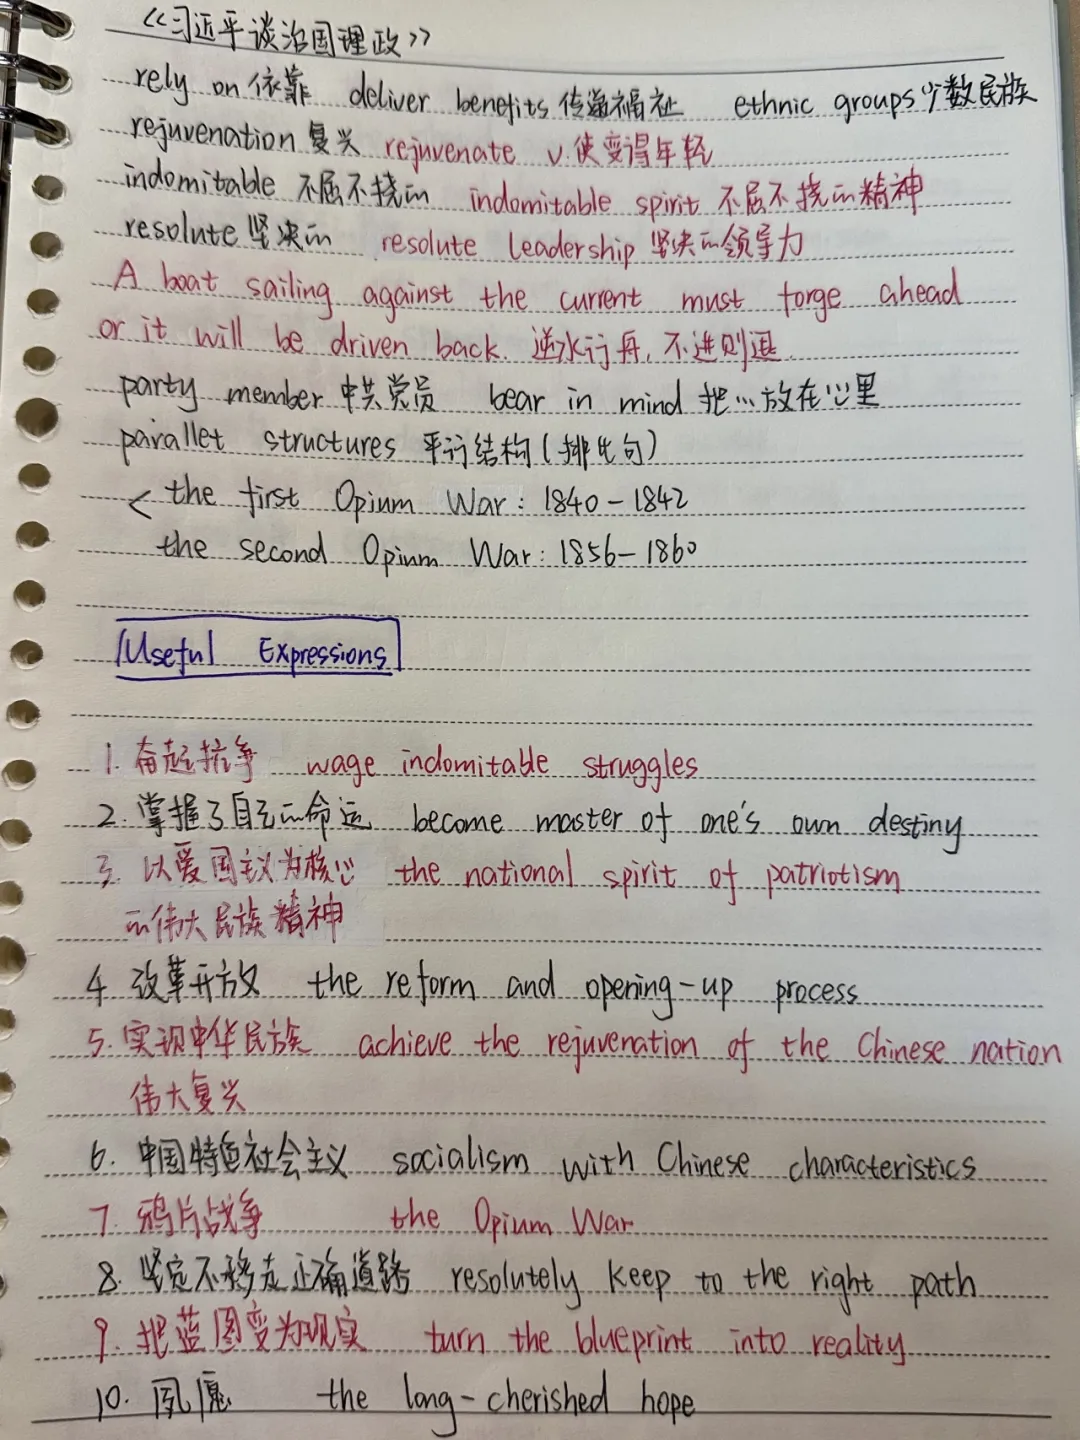 《习近平谈治国理政》
rely on 依靠 deliver benefits 传递福祉 ethnic groups 少数民族
rejuvenation 复兴 rejuvenate v.使变得年轻
indomitable 不屈不挠的 indomitable spirit 不屈不挠的精神
resolute 坚决的 resolute leadership 坚决的领导力
A boat sailing against the current must forge ahead
or it will be driven back. 逆水行舟，不进则退
party member 中共党员 bear in mind 把…放在心里
parallel structures 平行结构(排比句)
< the first Opium War: 1840-1842
the second Opium War: 1856-1860
Useful Expressions
1. 奋起抗争 wage indomitable struggles
2. 掌握了自己的命运 become master of one's own destiny
3. 以爱国主义为核心 the national spirit of patriotism
的伟大民族精神
4. 改革开放 the reform and opening-up process
5. 实现中华民族 achieve the rejuvenation of the Chinese nation
伟大复兴
6. 中国特色社会主义 socialism with Chinese characteristics
7. 鸦片战争 the Opium War
8. 坚定不移走正确道路 resolutely keep to the right path
9. 把蓝图变为现实 turn the blueprint into reality
10. 夙愿 the long-cherished hope